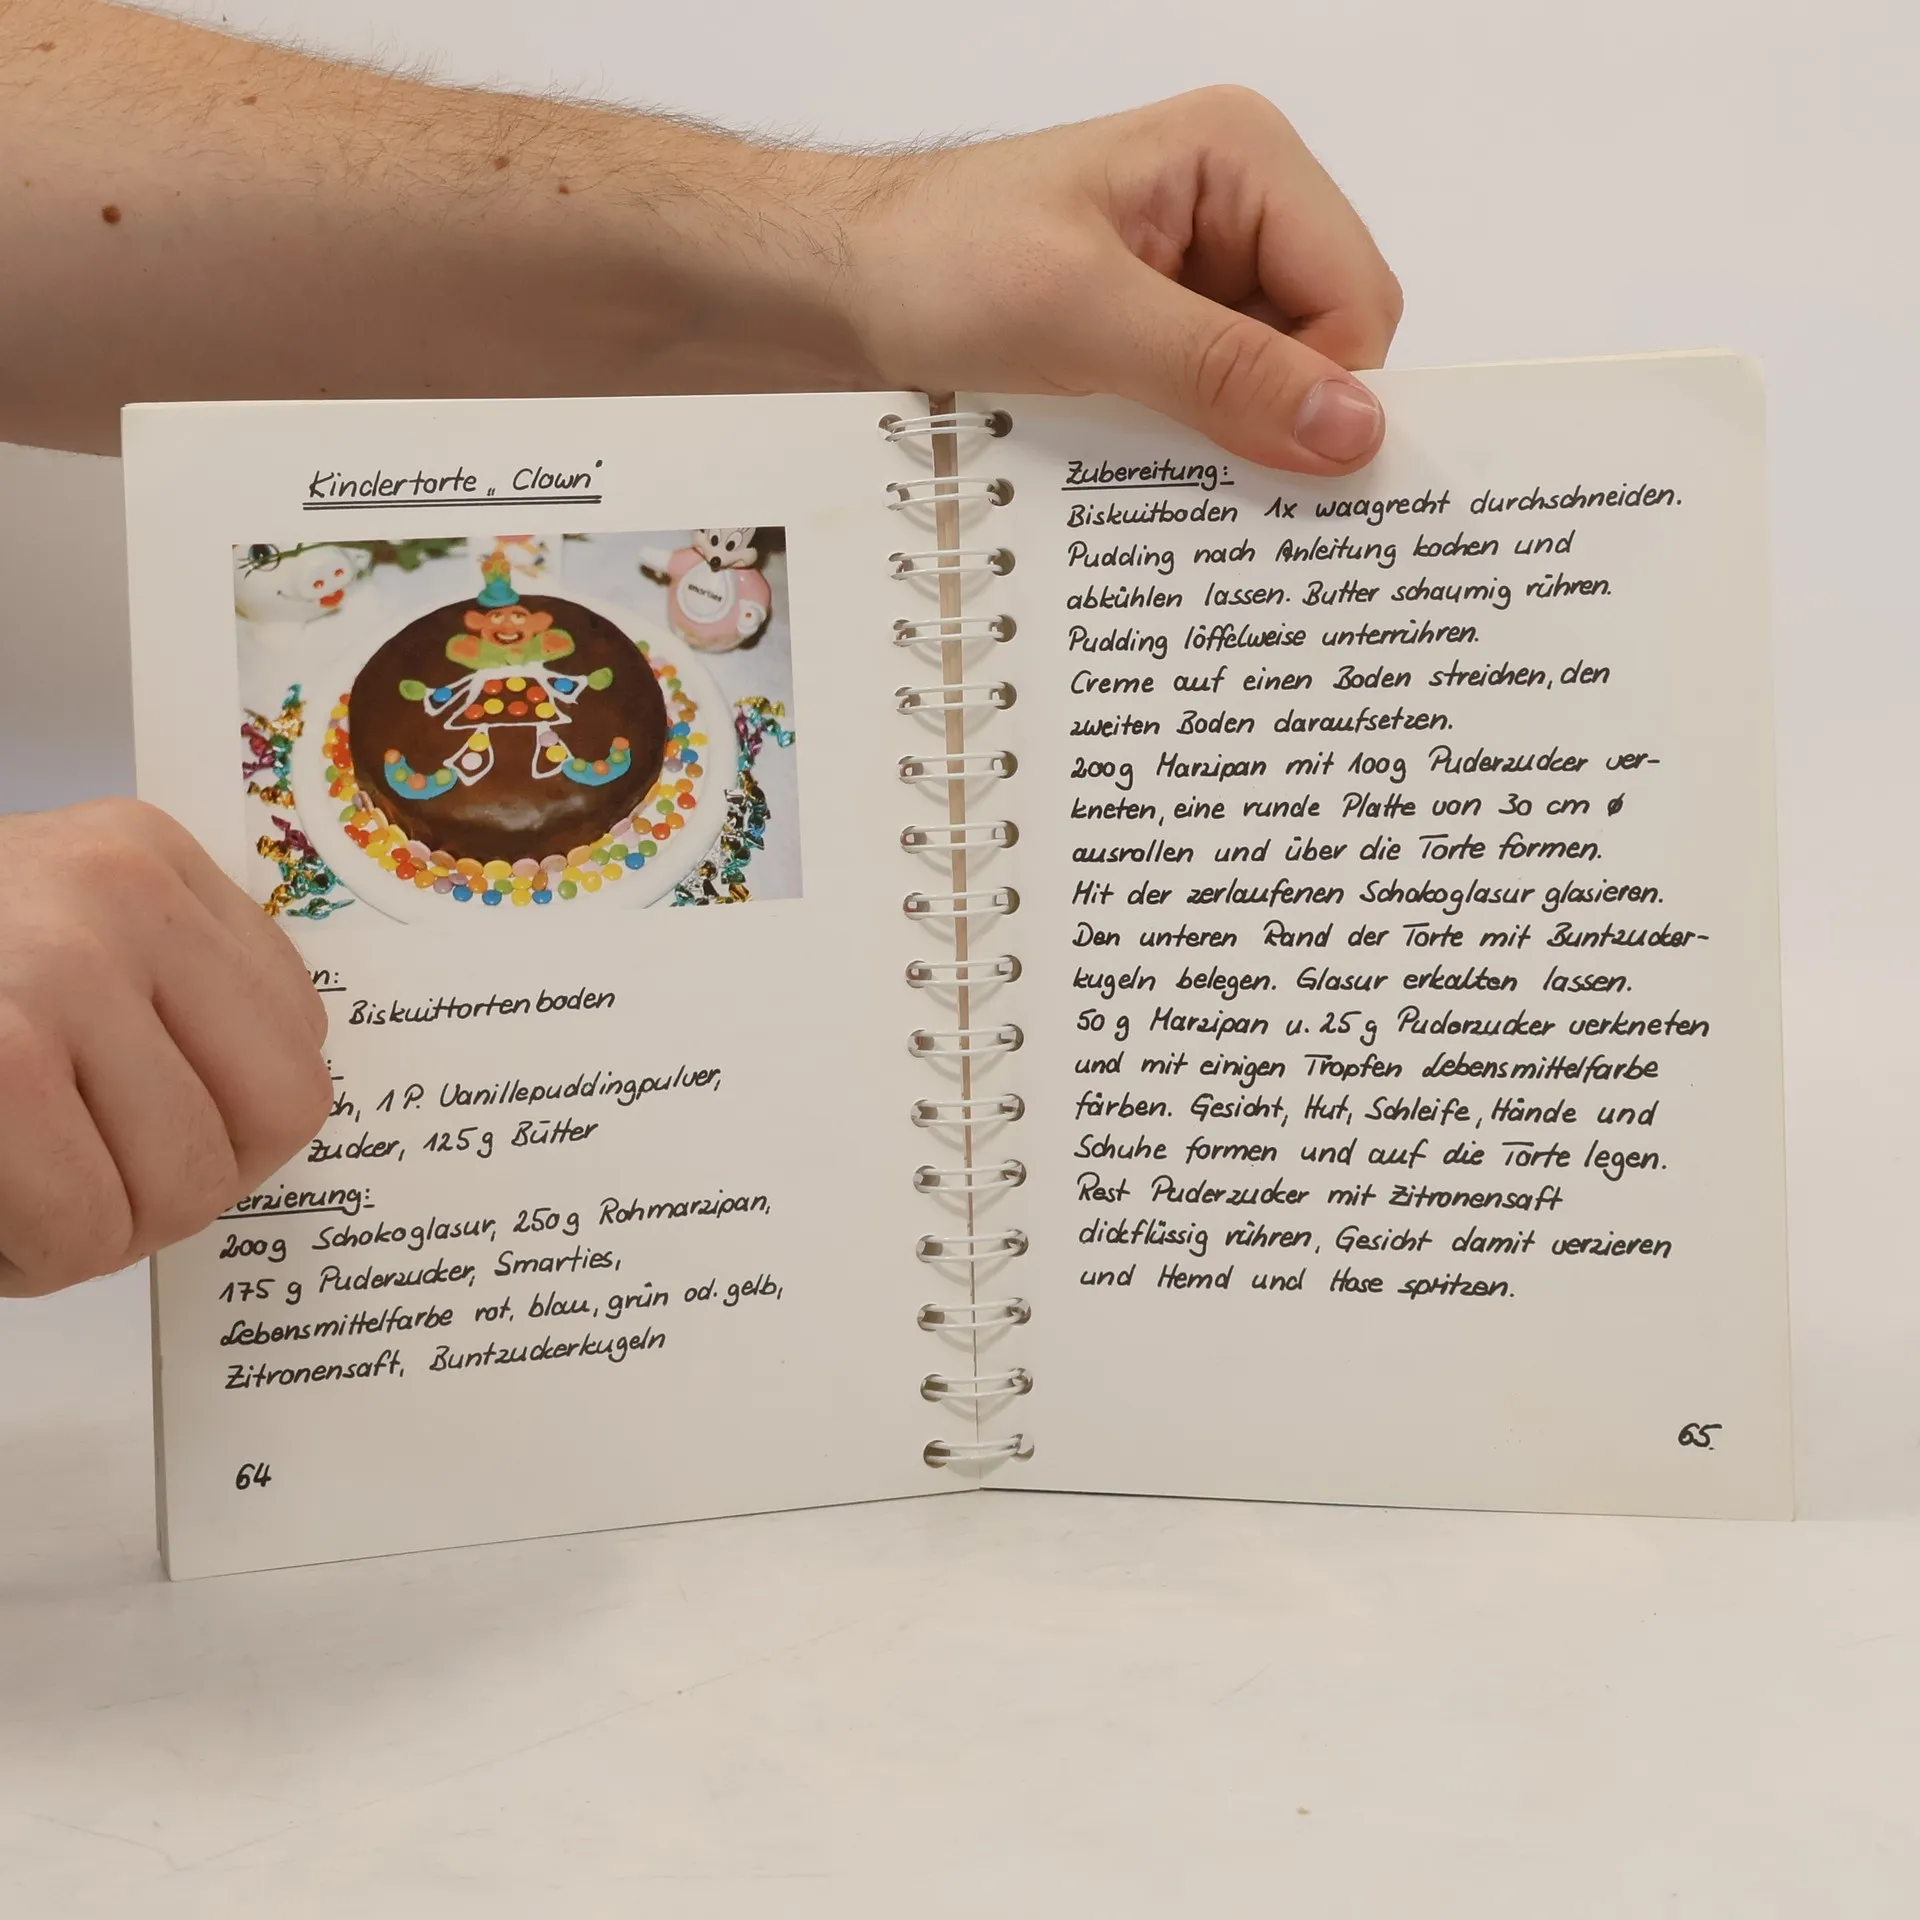 Kindertorte „Clown"
smarties
Biskuittortenboden
1 P. Vanillepuddingpulver,
Zucker, 125g Butter
200g Schokoglasur, 250g Rohmarzipan,
175 g Puderzucker, Smarties,
Lebensmittelfarbe rot, blau, grün od. gelb,
Zitronensaft, Buntzuckerkugeln
64
Zubereitung:
Biskuitboden 1x waagrecht durchschneiden.
Pudding nach Anleitung kochen und
abkühlen lassen. Butter schaumig rühren.
Pudding löffelweise unterrühren.
Creme auf einen Boden streichen, den
zweiten Boden daraufsetzen.
200g Marzipan mit 100g Puderzucker ver-
kneten, eine runde Platte von 30 cm ø
ausrollen und über die Torte formen.
Mit der zerlaufenen Schokoglasur glasieren.
Den unteren Rand der Torte mit Buntzucker-
kugeln belegen. Glasur erkalten lassen.
50 g Marzipan u. 25 g Puderzucker verkneten
und mit einigen Tropfen Lebensmittelfarbe
färben. Gesicht, Hut, Schleife, Hände und
Schuhe formen und auf die Torte legen.
Rest Puderzucker mit Zitronensaft
dickflüssig rühren, Gesicht damit verzieren
und Hemd und Hose spritzen.
65